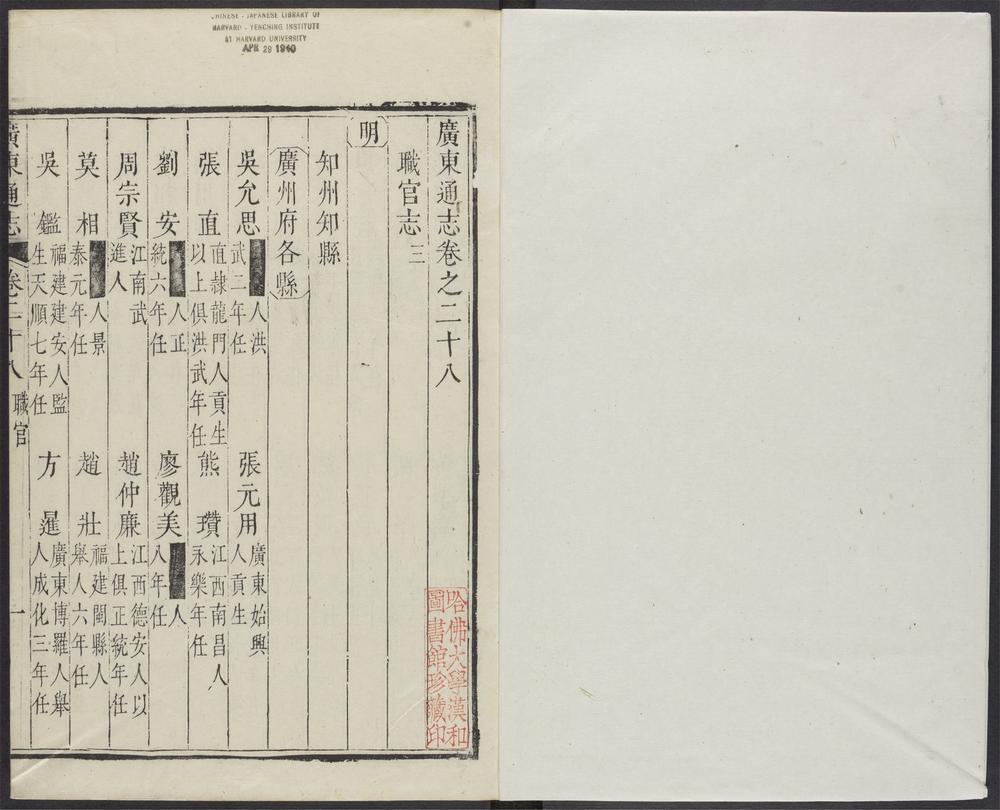 CHINESE - JAPANESE LIBRARY OF
HARVARD - YENCHING INSTITUTE
AT HARVARD UNIVERSITY
APR 29 1940
廣東通志卷之二十八
職官志三
明
知州知縣
廣州府各縣
吳允思 人洪武二年任 張元用 廣東始興人貢生
張直 直隸龍門人貢生以上俱洪武年任 熊瓚 江西南昌人永樂年任
劉安 人正統六年任 廖觀美 人八年任
周宗賢 江南武進人 趙仲廉 江西德安人以上俱正統年任
莫相 人景泰元年任 趙壯 福建閩縣人舉人六年任
吳鑑 福建建安人監生天順七年任 方暹 廣東博羅人舉人成化三年任
廣東通志 卷二十八 職官 一
哈佛大學漢和圖書館珍藏印